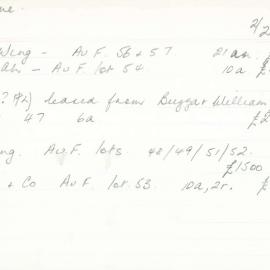 ne.
2/2
Wing - Av F. 56 + 57 21a
- Av F. lot 54 10a £
? leased from Buggar William
47 6a £2
ng. Av. F. lots 48/49/51/52.
£1500
+ Co Av F. lot 53. 10a, 2r. £